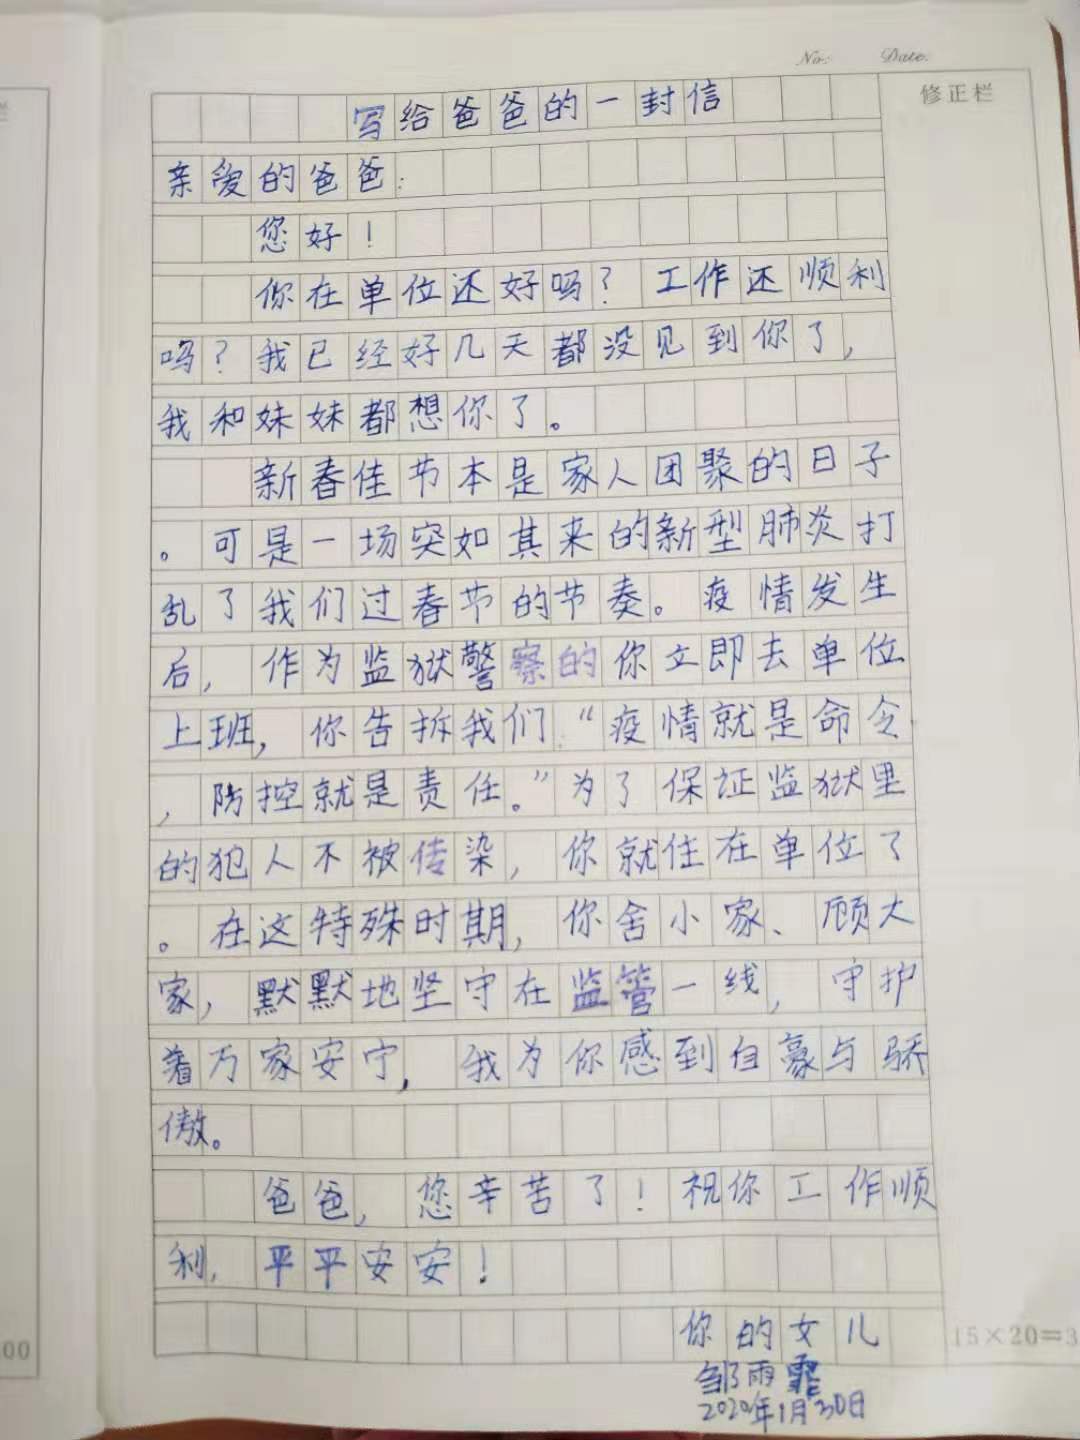 No.   Date.
修正栏
写给爸爸的一封信
亲爱的爸爸:
您好!
你在单位还好吗?工作还顺利
吗?我已经好几天都没见到你了,
我和妹妹都想你了。
新春佳节本是家人团聚的日子
。可是一场突如其来的新型肺炎打
乱了我们过春节的节奏。疫情发生
后,作为监狱警察的你立即去单位
上班,你告拆我们“疫情就是命令
,防控就是责任。”为了保证监狱里
的犯人不被传染,你就住在单位了
。在这特殊时期,你舍小家、顾大
家,默默地坚守在监管一线,守护
着万家安宁,我为你感到自豪与骄
傲。
爸爸,您辛苦了!祝你工作顺
利,平平安安!
你的女儿
邹雨霏
2020年1月30日
15×20=3
00